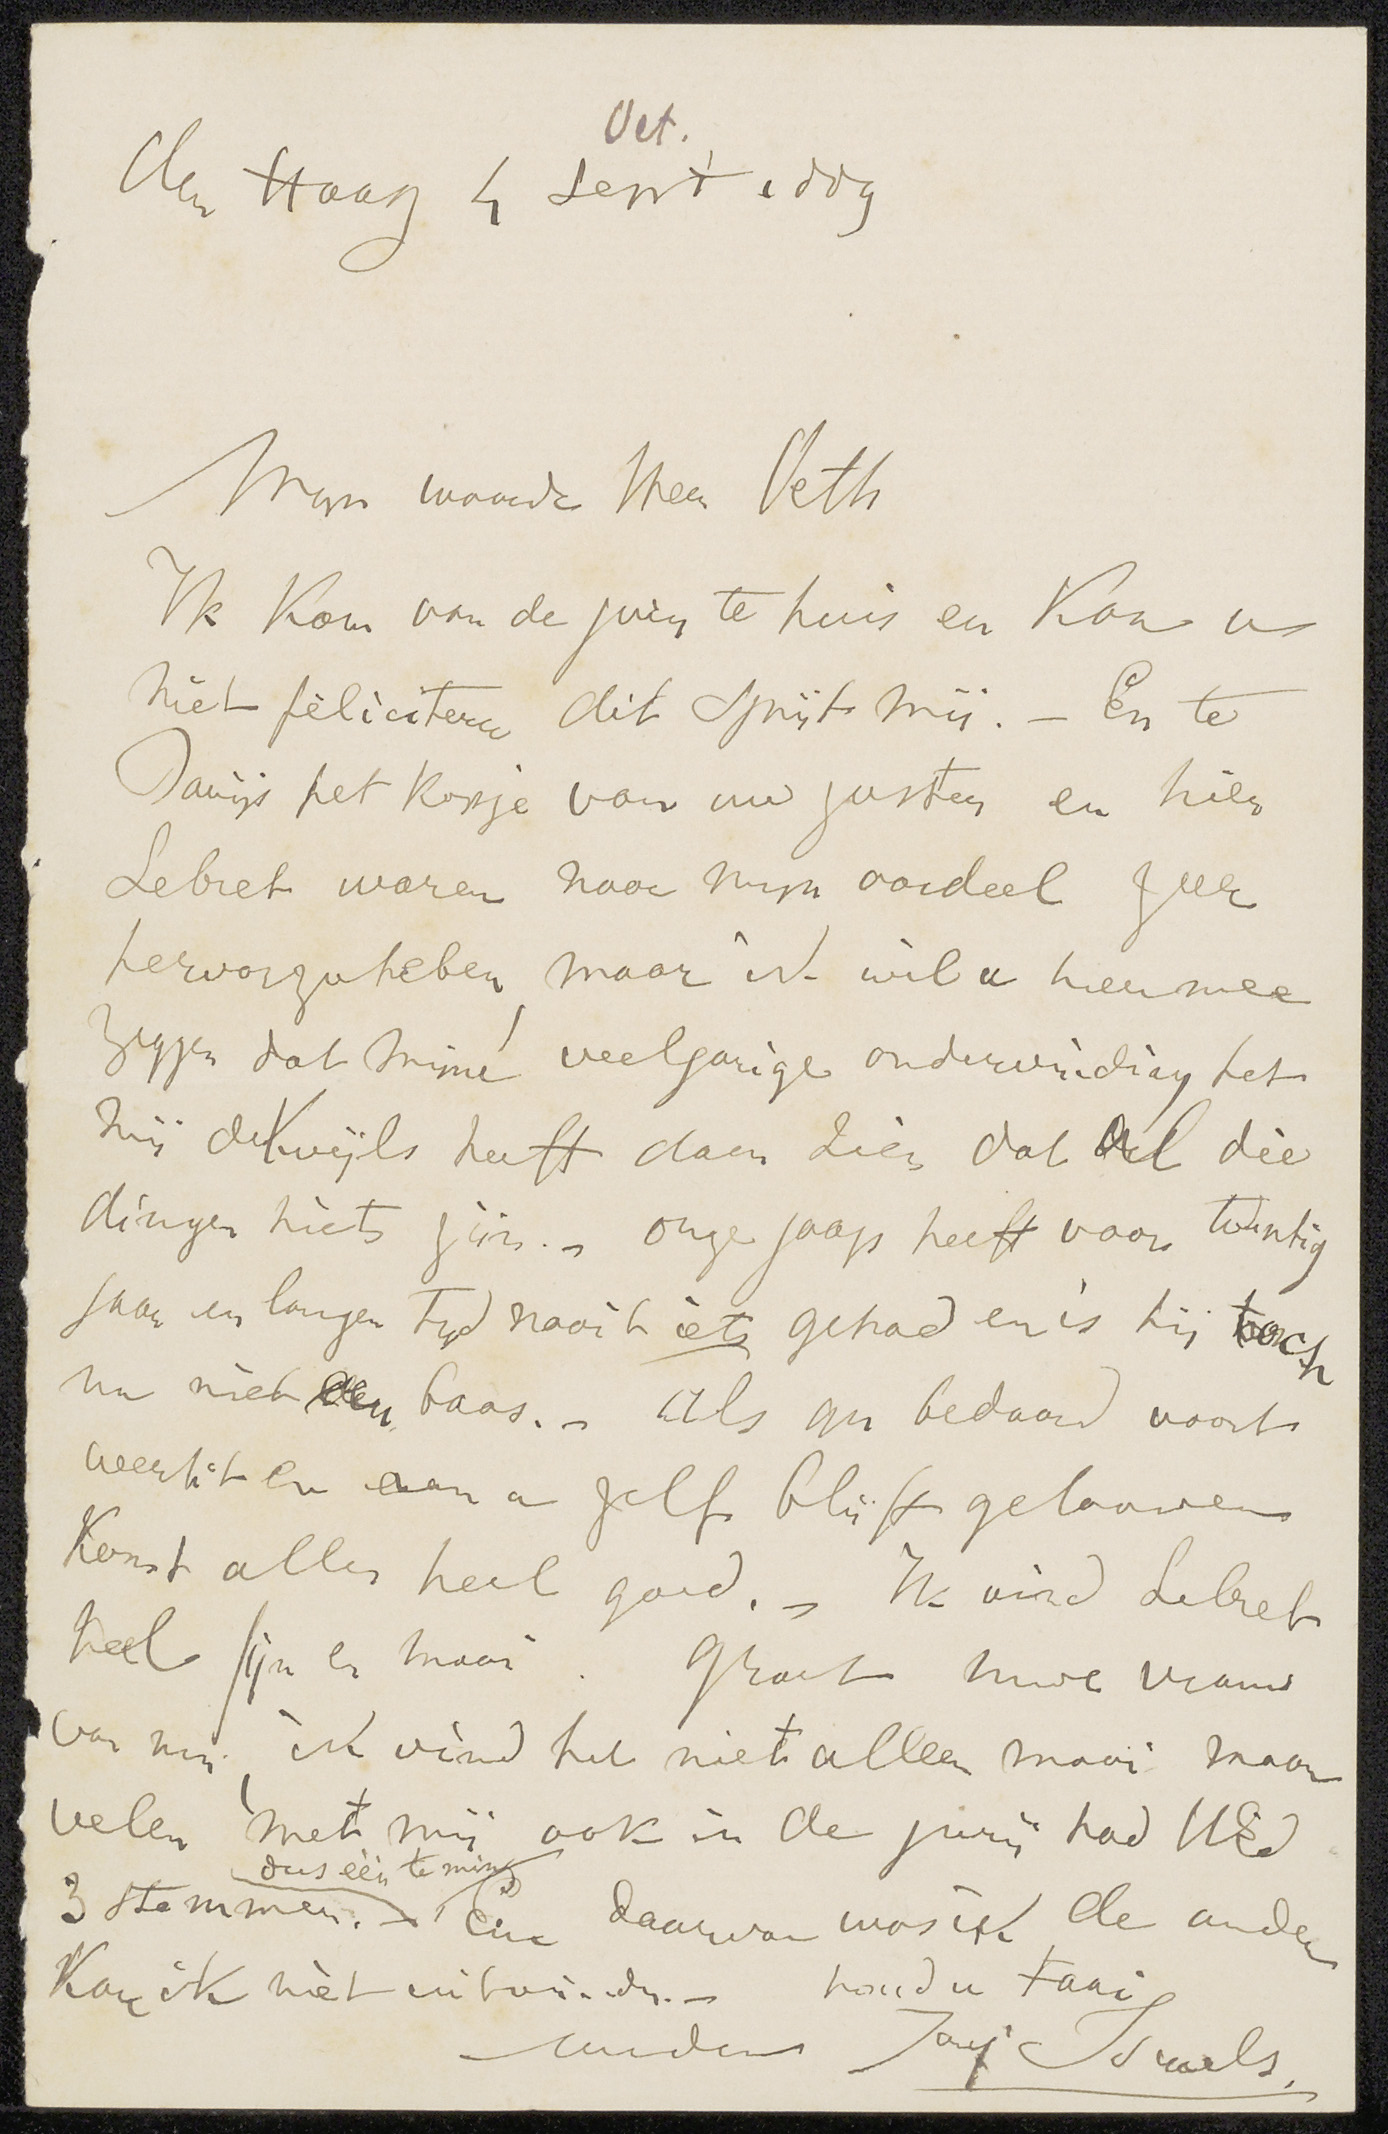 Oct.
den Haag 4 Sept 1889
Mijn waarde Heer Veth
Ik kom van de jury te huis en kan u
niet féliciteren dit spijt mij. — En te
Parijs het kopje van uw zuster en hier
Lebret waren naar mijn oordeel zeer
hervorzuheben, maar ik wil u hiermee
zeggen dat mijne veeljarige ondervinding het
mij dikwijls heeft doen zien dat al die
dingen niets zijn. — onze Jaap heeft voor twintig
jaar en langen tijd nooit iets gehad en is hij toch
nu niet een baas. — Als gij bedaard voort
werkt en aan u zelf blijft gelooven
komt alles heel goed. — Ik vind Lebret
heel fijn en mooi. Groet uwe vrouw
van mij, ik vind het niet alleen mooi maar
velen met mij ook in de jurij had UEd
dus één te min
3 stemmen. — Eene daarvan was ik de andere
kan ik niet uitvinden. — houd u taai
Jozef Israels.